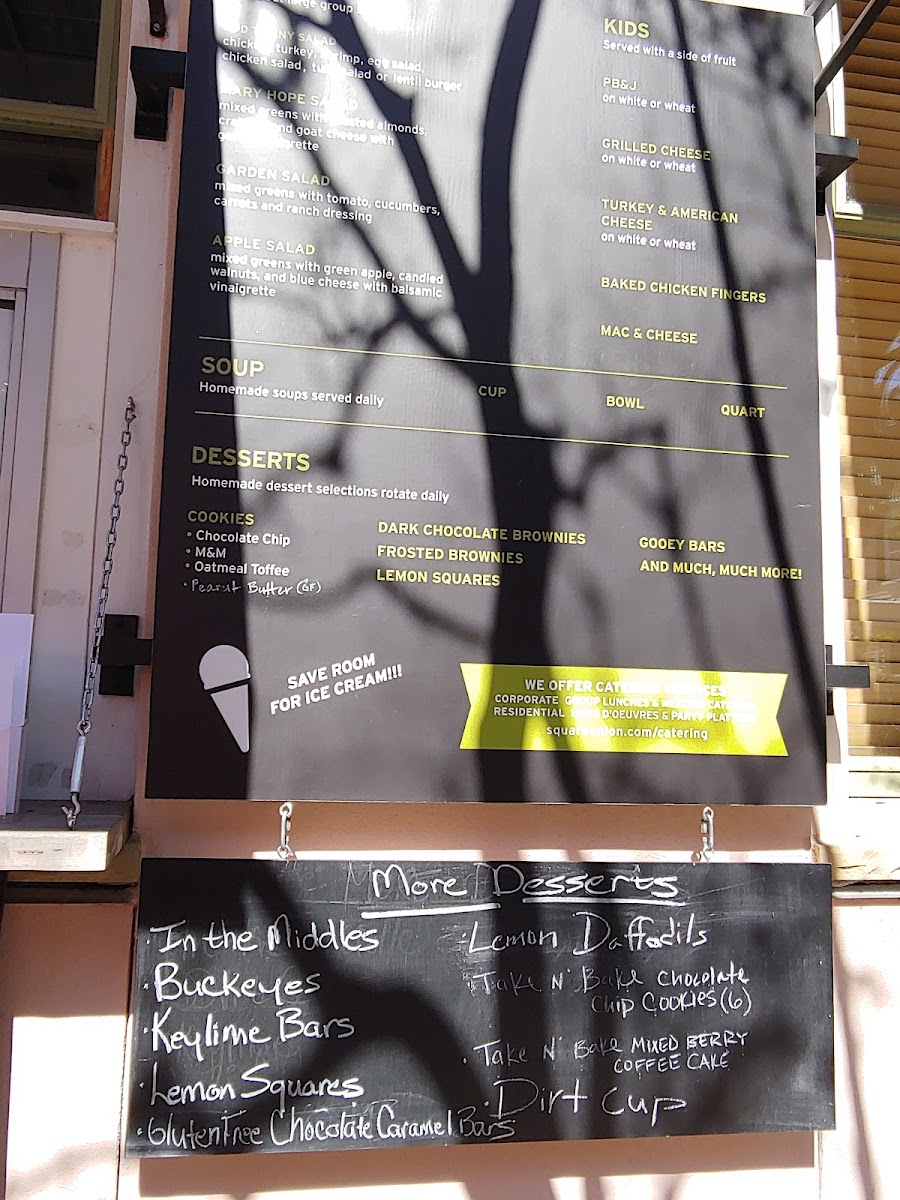 large group
SALAD
turkey, shrimp, egg salad,
chicken salad, tuna salad or lentil burger
MARY HOPE SALAD
mixed greens with toasted almonds,
and goat cheese with
GARDEN SALAD
mixed greens with tomato, cucumbers,
carrots and ranch dressing
APPLE SALAD
mixed greens with green apple, candied
walnuts, and blue cheese with balsamic
vinaigrette
KIDS
Served with a side of fruit
PB&J
on white or wheat
GRILLED CHEESE
on white or wheat
TURKEY & AMERICAN
CHEESE
on white or wheat
BAKED CHICKEN FINGERS
MAC & CHEESE
SOUP
Homemade soups served daily
CUP
BOWL
QUART
DESSERTS
Homemade dessert selections rotate daily
COOKIES
• Chocolate Chip
• M&M
• Oatmeal Toffee
• Peanut Butter (GF)
DARK CHOCOLATE BROWNIES
FROSTED BROWNIES
LEMON SQUARES
GOOEY BARS
AND MUCH, MUCH MORE!
SAVE ROOM
FOR ICE CREAM!!!
WE OFFER CATERING SERVICES
CORPORATE GROUP LUNCHES & MEETING CATERING
RESIDENTIAL HORS D'OEUVRES & PARTY PLATTERS
squareonion.com/catering
More Desserts
• In the Middles
• Buckeyes
• Keylime Bars
• Lemon Squares
• Gluten Free Chocolate Caramel Bars
• Lemon Daffodils
• Take N' Bake Chocolate
Chip Cookies (6)
• Take N' Bake MIXED BERRY
COFFEE CAKE
• Dirt Cup